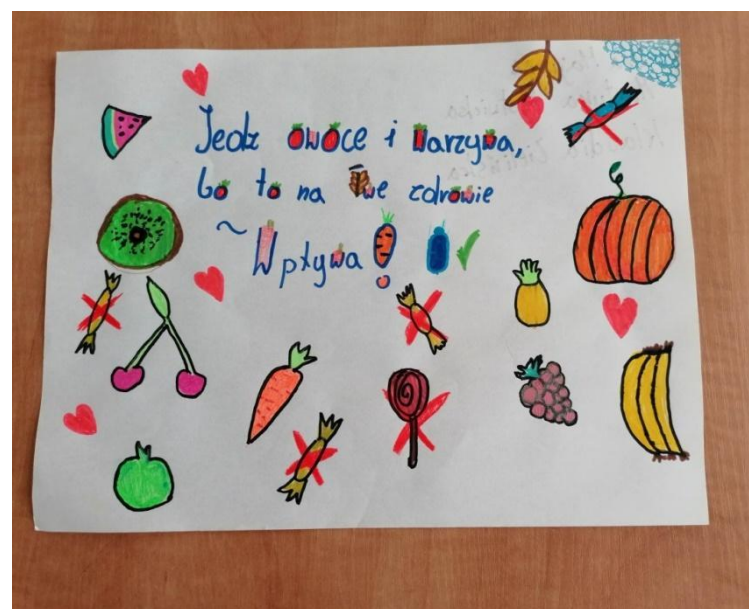 Jedz owoce i warzywa,
bo to na Twe zdrowie
~ Wpływa!